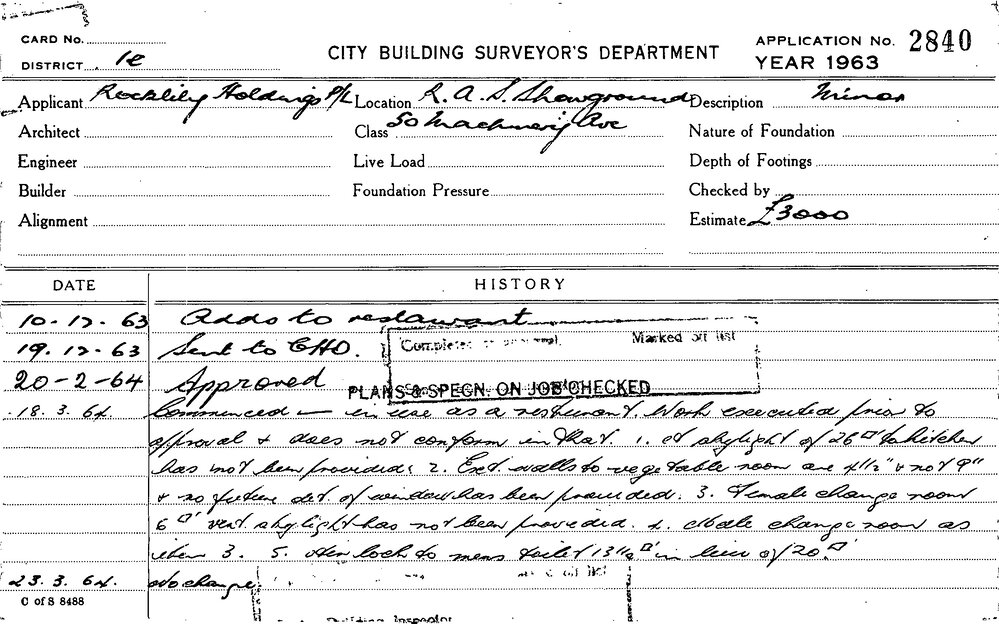 CARD No.
DISTRICT 1e
CITY BUILDING SURVEYOR'S DEPARTMENT
APPLICATION No. 2840
YEAR 1963
Applicant Rocklily Holdings P/L Location R.A.S. Showground Description Minor
Architect Class 50 Machinery Ave Nature of Foundation
Engineer Live Load Depth of Footings
Builder Foundation Pressure Checked by
Alignment Estimate £3000
DATE HISTORY
10.12.63 Adds to restaurant
19.12.63 Sent to CHO.
Completed Marked off list
20-2-64 Approved
PLANS & SPECN. ON JOB CHECKED
18.3.64. Commenced — in use as a restaurant. Work executed prior to
approval & does not conform in that. 1. A skylight of 26 □' to kitchen
has not been provided; 2. Ext walls to vegetable room are 4½" & not 9"
& no future det. of window has been provided. 3. Female change room
6 □' vent skylight has not been provided. 4. Male change room as
item 3. 5. Air lock to mens toilet 13½ □' in lieu of 20 □'
23.3.64. No change.
C of S 8488
Building Inspector